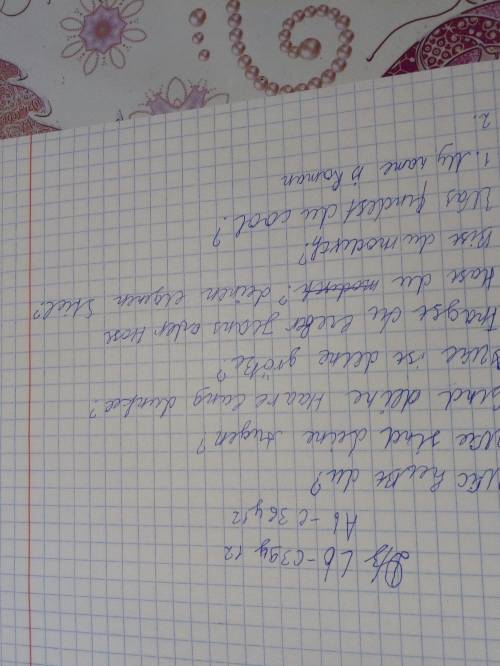 Д/з Lb - c 39 y 12
Ab - c 36 y 12
Wie heißt du?
Wie sind deine Augen?
Sind deine Haare lang dunkel?
Wie ist deine größe?
Trägst du lieber Jeans oder Hose
Hast du modisch? deinen eigenen Stiel?
Bist du modisch?
Was findest du cool?
1. My name is Roman
2.